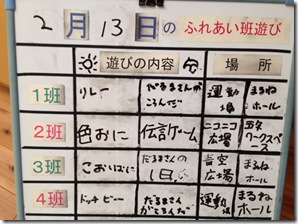 2月13日のふれあい班遊び
遊びの内容 場所
1班 リレー だるまさんがころんだ 運動場 まるねホール
2班 色おに 伝言ゲーム ニコニコ広場 ワークスペース
3班 こおりおに だるまさんの1日 青空広場 まるねホール
4班 ドッチビー だるまさんがころんだ 運動場 まるねホール